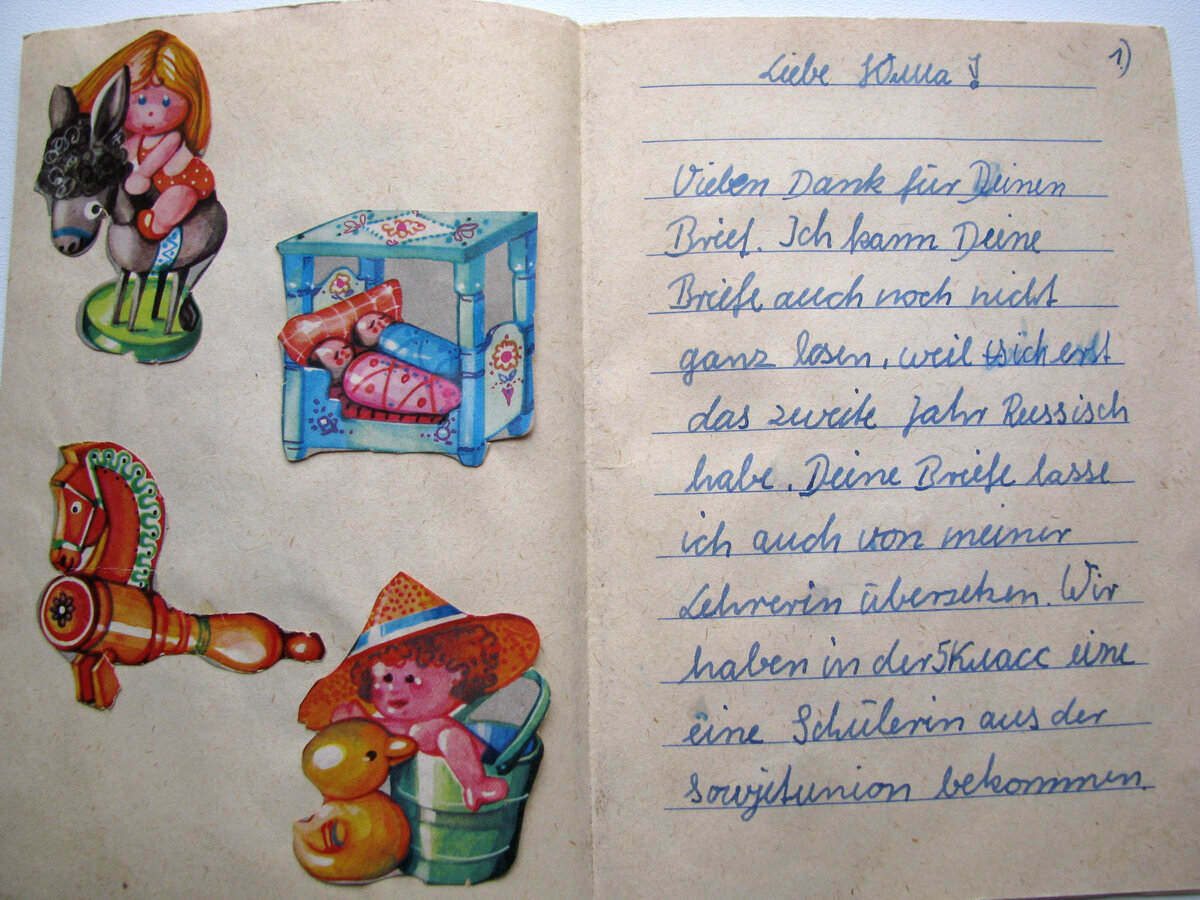 1.)
Liebe Юлиа !
Vielen Dank für Deinen
Brief. Ich kann Deine
Briefe auch noch nicht
ganz lesen, weil ich erst
das zweite Jahr Russisch
habe. Deine Briefe lasse
ich auch von meiner
Lehrerin übersetzen. Wir
haben in der 5 Класс eine
eine Schülerin aus der
Sowjetunion bekommen.